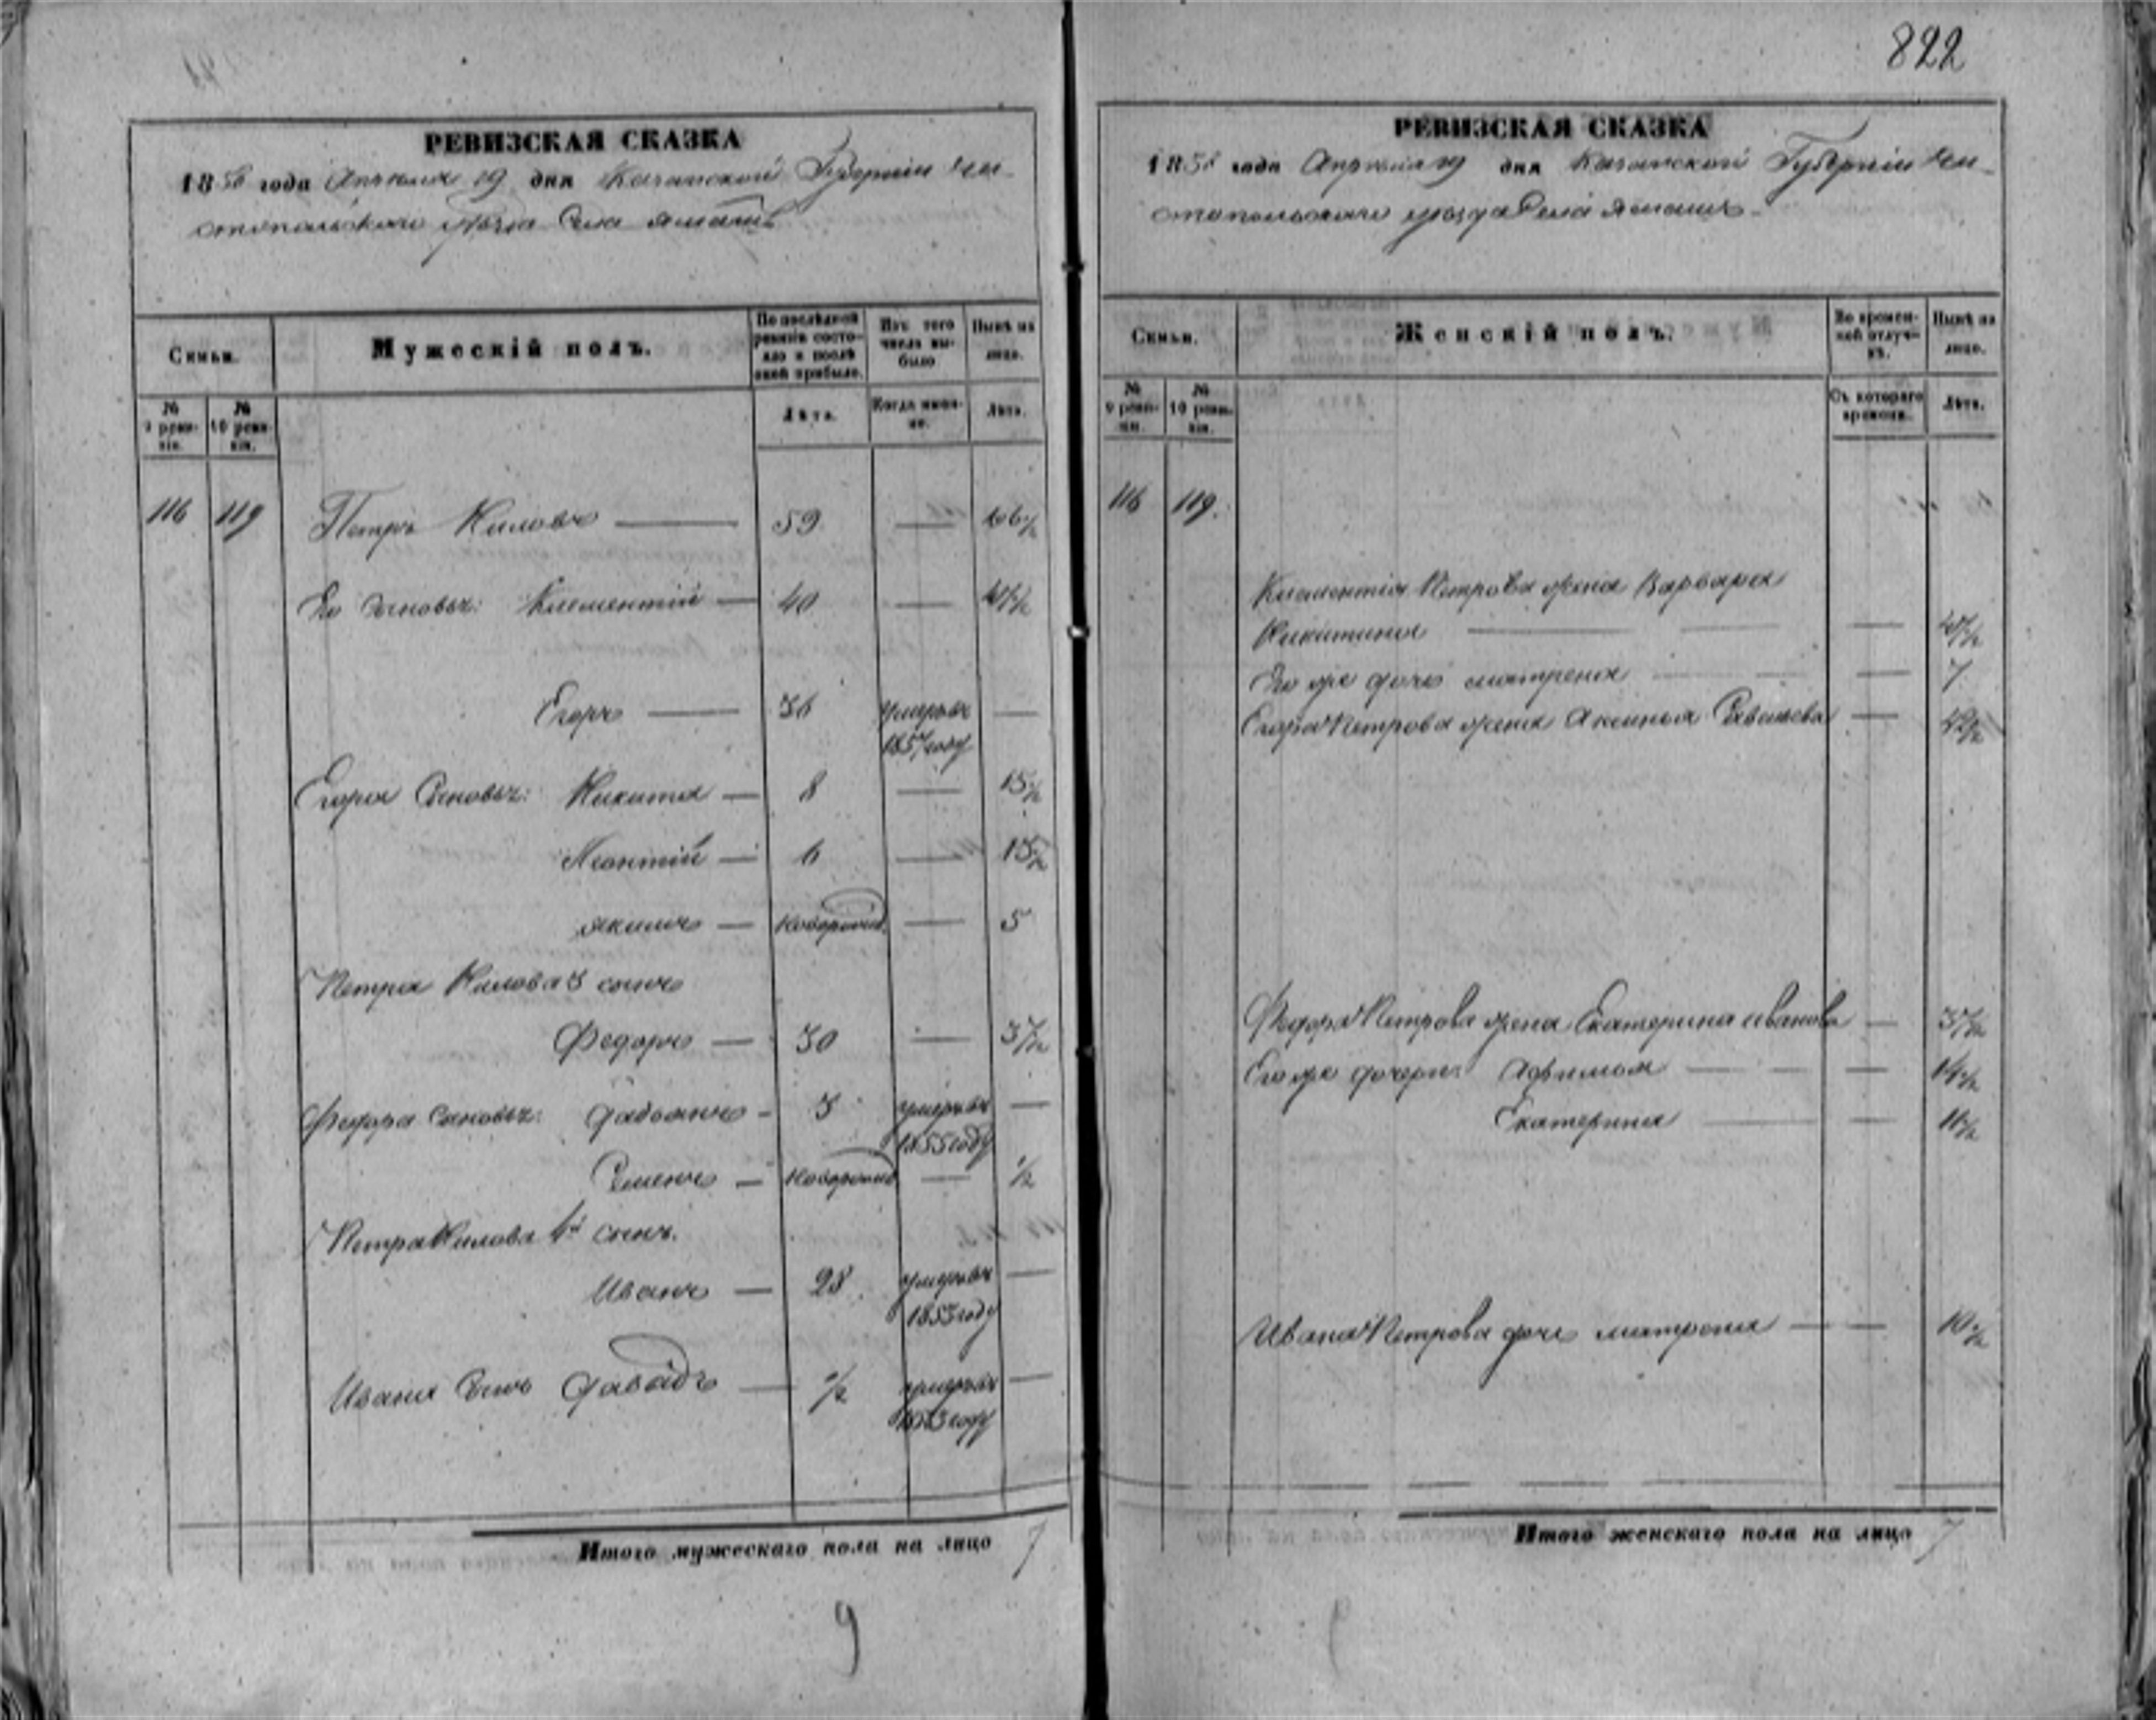 822
РЕВИЗСКАЯ СКАЗКА
1858 года Апреля 19 дня Казанской Губернiи Чи-
стопольскаго уѣзда Села Ямашъ
Семьи.
Мужескiй полъ.
По послѣдней ревизiи состояло и послѣ оной прибыло.
Изъ того числа выбыло
Нынѣ на лицо.
№ 9 ревизiи.
№ 10 ревизiи.
Лѣта.
Когда именно.
Лѣта.
116 119 Петръ Ниловъ — 59 — 66½
Его сыновья: Клементiй — 40 — 47½
Егоръ — 36 умеръ въ —
1857 году
Егора Сыновья: Никита — 8 — 15½
Леонтiй — 6 — 13½
Якимъ — новорожд. — 5
Петра Нилова 3 сынъ
Федоръ — 30 — 37½
Федора Сыновья: — 3 умеръ въ —
1855 году
Семенъ — новорожд — ½
Петра Нилова 4й сынъ.
Иванъ — 28 умеръ въ —
1853 году
Ивана Сынъ Давидъ — ½ умеръ въ —
1853 году
Итого мужескаго пола на лицо 7
9
РЕВИЗСКАЯ СКАЗКА
1858 года Апреля 19 дня Казанской Губернiи Чи-
стопольскаго уѣзда Села Ямашъ
Семьи.
Женскiй полъ.
Во временной отлучкѣ.
Нынѣ на лицо.
№ 9 ревизiи.
№ 10 ревизiи.
Съ котораго времени.
Лѣта.
116 119.
Клементiя Петрова жена Варвара
Никитина — — 47½
Его же дочь Матрена — — 7
Егора Петрова жена Аксинья — 42½
Федора Петрова жена Екатерина Иванова — 37½
Его же дочери: Афимья — — 14½
Екатерина — — 11½
Ивана Петрова дочь Матрена — — 10½
Итого женскаго пола на лицо 7